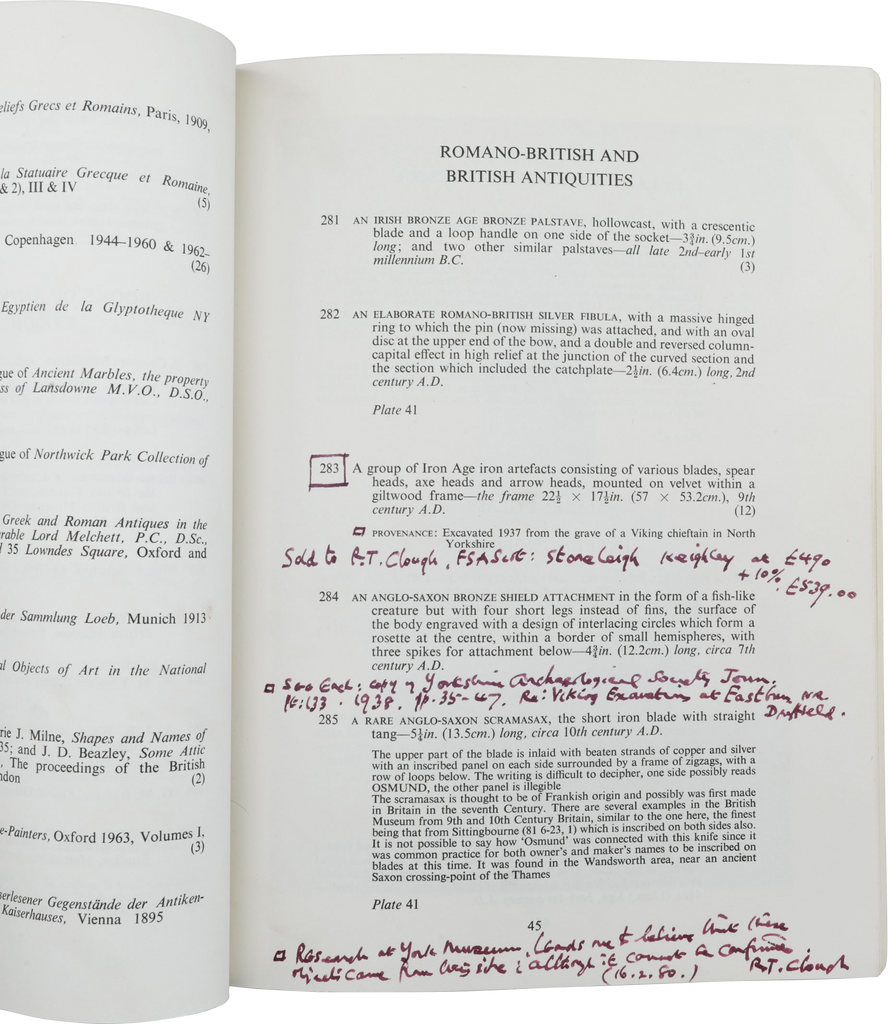 eliefs Grecs et Romains, Paris, 1909,
la Statuaire Grecque et Romaine,
& 2), III & IV
(5)
Copenhagen 1944–1960 & 1962–
(26)
Egyptien de la Glyptotheque NY
gue of Ancient Marbles, the property
ss of Lansdowne M.V.O., D.S.O.,
gue of Northwick Park Collection of
Greek and Roman Antiques in the
rable Lord Melchett, P.C., D.Sc.,
35 Lowndes Square, Oxford and
der Sammlung Loeb, Munich 1913
al Objects of Art in the National
rie J. Milne, Shapes and Names of
35; and J. D. Beazley, Some Attic
, The proceedings of the British
ndon (2)
e-Painters, Oxford 1963, Volumes I,
(3)
serlesener Gegenstände der Antiken-
Kaiserhauses, Vienna 1895
ROMANO-BRITISH AND
BRITISH ANTIQUITIES
281 AN IRISH BRONZE AGE BRONZE PALSTAVE, hollowcast, with a crescentic
blade and a loop handle on one side of the socket—3¾in. (9.5cm.)
long; and two other similar palstaves—all late 2nd-early 1st
millennium B.C. (3)
282 AN ELABORATE ROMANO-BRITISH SILVER FIBULA, with a massive hinged
ring to which the pin (now missing) was attached, and with an oval
disc at the upper end of the bow, and a double and reversed column-
capital effect in high relief at the junction of the curved section and
the section which included the catchplate—2½in. (6.4cm.) long, 2nd
century A.D.
Plate 41
283 A group of Iron Age iron artefacts consisting of various blades, spear
heads, axe heads and arrow heads, mounted on velvet within a
giltwood frame—the frame 22½ × 17½in. (57 × 53.2cm.), 9th
century A.D. (12)
PROVENANCE: Excavated 1937 from the grave of a Viking chieftain in North
Yorkshire
Sold to R.T. Clough, FSAScot: Stoneleigh Keighley at £490
+10% £539.00
284 AN ANGLO-SAXON BRONZE SHIELD ATTACHMENT in the form of a fish-like
creature but with four short legs instead of fins, the surface of
the body engraved with a design of interlacing circles which form a
rosette at the centre, within a border of small hemispheres, with
three spikes for attachment below—4¾in. (12.2cm.) long, circa 7th
century A.D.
See Encl: copy of Yorkshire Archaeological Society Journ.
Pt:133. 1938. pp. 35-47. Re: Viking Excavation at Eastburn nr
Driffield.
285 A RARE ANGLO-SAXON SCRAMASAX, the short iron blade with straight
tang—5¼in. (13.5cm.) long, circa 10th century A.D.
The upper part of the blade is inlaid with beaten strands of copper and silver
with an inscribed panel on each side surrounded by a frame of zigzags, with a
row of loops below. The writing is difficult to decipher, one side possibly reads
OSMUND, the other panel is illegible
The scramasax is thought to be of Frankish origin and possibly was first made
in Britain in the seventh Century. There are several examples in the British
Museum from 9th and 10th Century Britain, similar to the one here, the finest
being that from Sittingbourne (81 6-23, 1) which is inscribed on both sides also.
It is not possible to say how 'Osmund' was connected with this knife since it
was common practice for both owner's and maker's names to be inscribed on
blades at this time. It was found in the Wandsworth area, near an ancient
Saxon crossing-point of the Thames
Plate 41
45
Research at York Museum, leads me to believe that these
objects came from this site; although it cannot be confirmed.
(16.2.80.) R.T. Clough